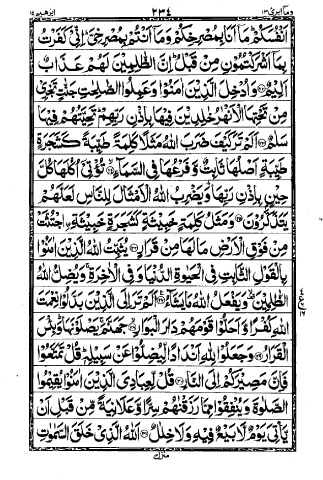 وما ابرئ ١٣ ٢٣٤ ابرٰهيم ١٤
اَنْفُسَكُمْ مَا اَنَا بِمُصْرِخِكُمْ وَمَا اَنْتُمْ بِمُصْرِخِيَّ اِنِّيْ كَفَرْتُ
بِمَا اَشْرَكْتُمُوْنِ مِنْ قَبْلُ اِنَّ الظّٰلِمِيْنَ لَهُمْ عَذَابٌ
اَلِيْمٌ ٢٢ وَاُدْخِلَ الَّذِيْنَ اٰمَنُوْا وَعَمِلُوا الصّٰلِحٰتِ جَنّٰتٍ تَجْرِيْ
مِنْ تَحْتِهَا الْاَنْهٰرُ خٰلِدِيْنَ فِيْهَا بِاِذْنِ رَبِّهِمْ تَحِيَّتُهُمْ فِيْهَا
سَلٰمٌ ٢٣ اَلَمْ تَرَ كَيْفَ ضَرَبَ اللّٰهُ مَثَلًا كَلِمَةً طَيِّبَةً كَشَجَرَةٍ
طَيِّبَةٍ اَصْلُهَا ثَابِتٌ وَّفَرْعُهَا فِي السَّمَآءِ ٢٤ تُؤْتِيْ اُكُلَهَا كُلَّ
حِيْنٍ بِاِذْنِ رَبِّهَا وَيَضْرِبُ اللّٰهُ الْاَمْثَالَ لِلنَّاسِ لَعَلَّهُمْ
يَتَذَكَّرُوْنَ ٢٥ وَمَثَلُ كَلِمَةٍ خَبِيْثَةٍ كَشَجَرَةٍ خَبِيْثَةِ ِۨاجْتُثَّتْ
مِنْ فَوْقِ الْاَرْضِ مَا لَهَا مِنْ قَرَارٍ ٢٦ يُثَبِّتُ اللّٰهُ الَّذِيْنَ اٰمَنُوْا
بِالْقَوْلِ الثَّابِتِ فِي الْحَيٰوةِ الدُّنْيَا وَفِي الْاٰخِرَةِ وَيُضِلُّ اللّٰهُ
الظّٰلِمِيْنَ وَيَفْعَلُ اللّٰهُ مَا يَشَآءُ ٢٧ اَلَمْ تَرَ اِلَى الَّذِيْنَ بَدَّلُوْا نِعْمَتَ
اللّٰهِ كُفْرًا وَّاَحَلُّوْا قَوْمَهُمْ دَارَ الْبَوَارِ ٢٨ جَهَنَّمَ يَصْلَوْنَهَا وَبِئْسَ
الْقَرَارُ ٢٩ وَجَعَلُوْا لِلّٰهِ اَنْدَادًا لِّيُضِلُّوْا عَنْ سَبِيْلِهٖ قُلْ تَمَتَّعُوْا
فَاِنَّ مَصِيْرَكُمْ اِلَى النَّارِ ٣٠ قُلْ لِّعِبَادِيَ الَّذِيْنَ اٰمَنُوْا يُقِيْمُوا
الصَّلٰوةَ وَيُنْفِقُوْا مِمَّا رَزَقْنٰهُمْ سِرًّا وَّعَلَانِيَةً مِّنْ قَبْلِ اَنْ
يَّاْتِيَ يَوْمٌ لَّا بَيْعٌ فِيْهِ وَلَا خِلٰلٌ ٣١ اَللّٰهُ الَّذِيْ خَلَقَ السَّمٰوٰتِ
منزل ٣